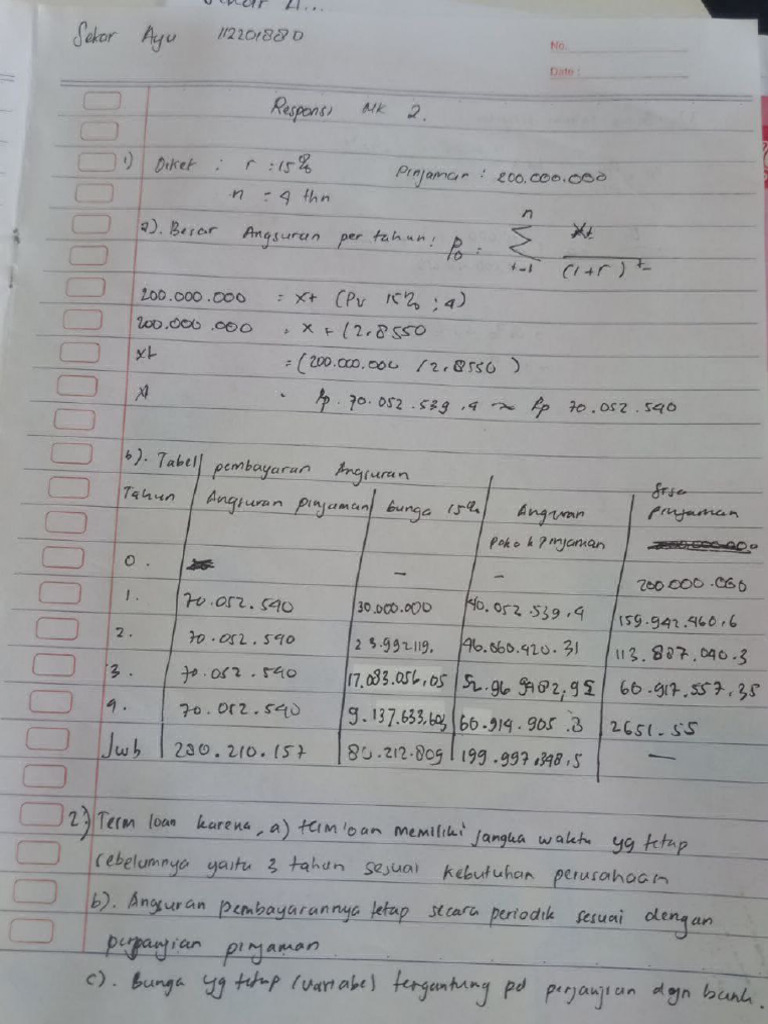 Sekar Ayu 112201880
No.
Date :
Responsi MK 2.
1) Diket : r : 15% Pinjaman : 200.000.000
n = 4 thn
a). Besar Angsuran per tahun : P0 = n Σ t=1 Xt / (1+r)^t
200.000.000 = Xt (PV 15% ; 4)
200.000.000 = X + (2.8550
Xt = (200.000.000 / 2.8550)
Rp. 70.052.539,4 ~ Rp 70.052.540
b). Tabel pembayaran Angsuran
Tahun Angsuran pinjaman bunga 15% Angsuran pokok pinjaman Sisa pinjaman
0. - - 200.000.000
1. 70.052.540 30.000.000 40.052.539,4 159.942.460,6
2. 70.052.540 23.992.119. 46.060.420.31 113.887.040.3
3. 70.052.540 17.083.056,05 52.96 9482,95 60.917.557,35
4. 70.052.540 9.137.633,603 60.914.905.3 2651.55
Jwb 280.210.157 80.212.809 199.997.348,5 -
2.) Term loan karena, a) term loan memiliki jangka waktu yg tetap
sebelumnya yaitu 3 tahun sesuai kebutuhan perusahaan
b). Angsuran pembayarannya tetap secara periodik sesuai dengan
perjanjian pinjaman
c). Bunga yg tetap (variabel tergantung pd perjanjian dgn bank.